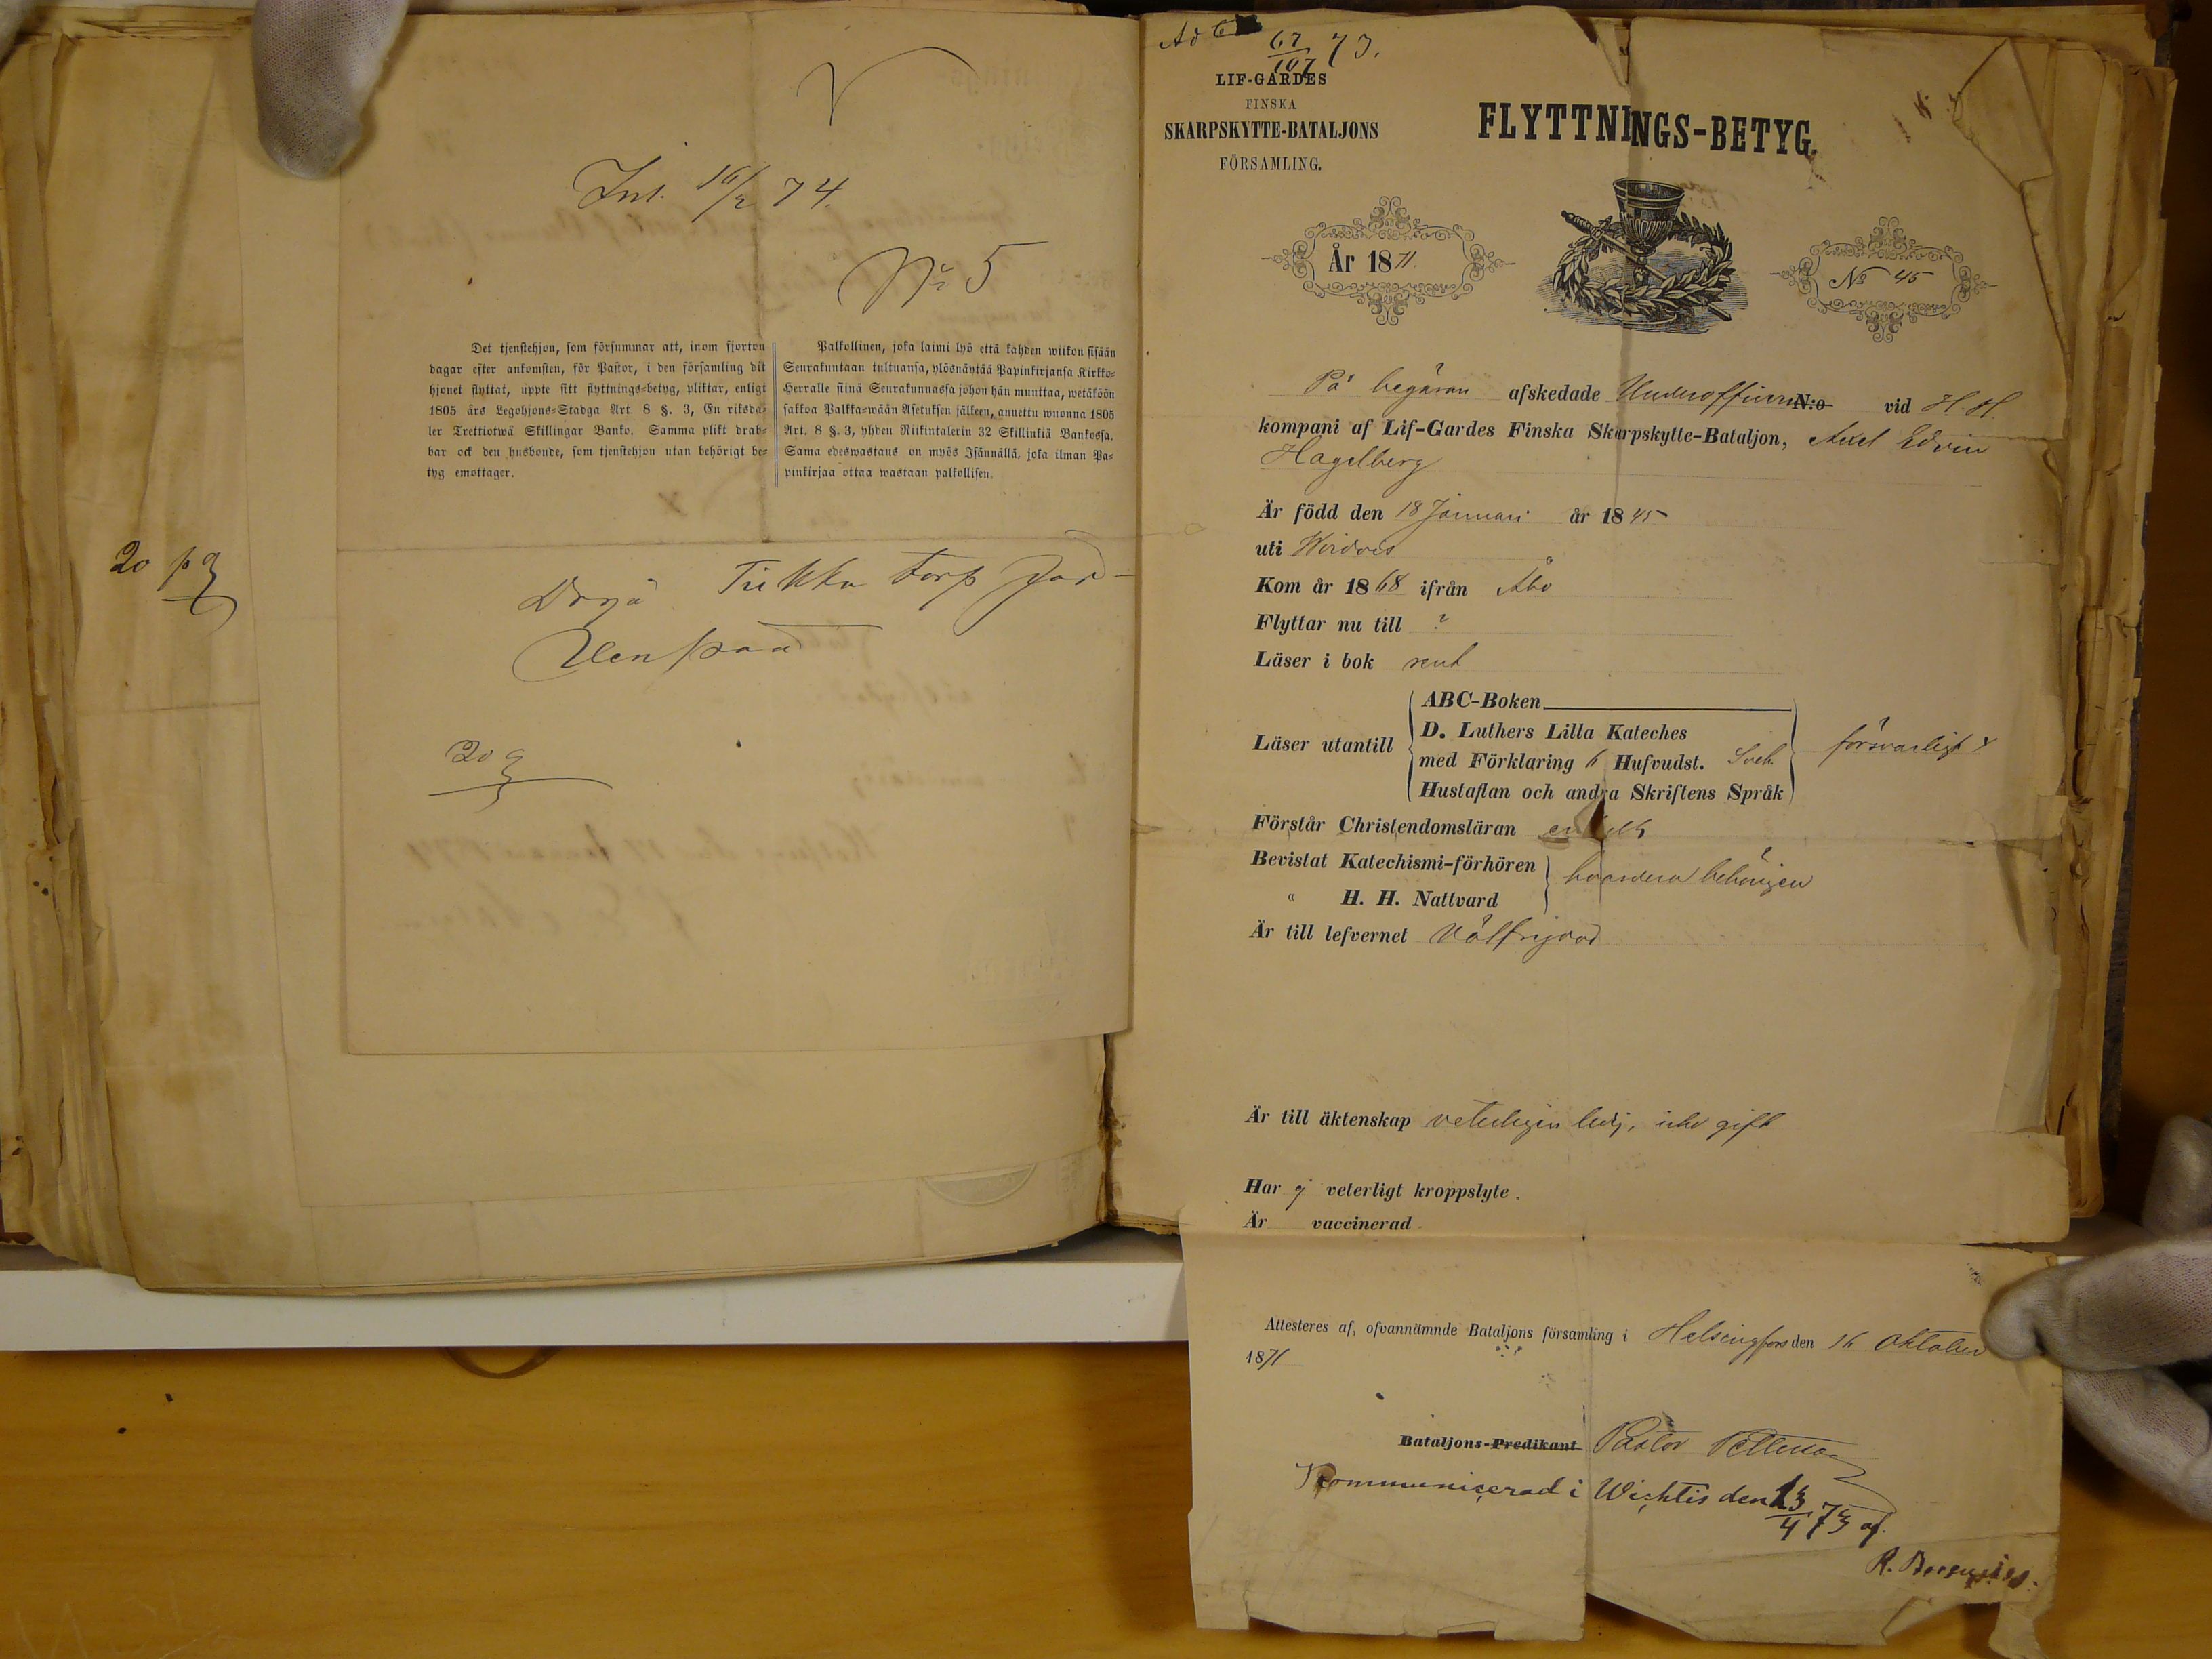 Inl. 16/2 74.
No 5
Det tjenstehjon, som försummar att, inom fjorton
dagar efter ankomsten, för Pastor, i den församling dit
hjonet flyttat, uppte sitt flyttnings-betyg, pliktar, enligt
1805 års Legohjons-Stadga Art. 8 §. 3, En riksda-
ler Trettiotwå Skillingar Banko. Samma plikt drab-
bar ock den husbonde, som tjenstehjon utan behörigt be-
tyg emottager.
Palkollinen, joka laimi lyö että kahden wiikon sisään
Seurakuntaan tultuansa, ylösnäytää Papinkirjansa Kirkko-
Herralle siinä Seurakunnassa johon hän muuttaa, wetäköön
sakkoa Palkka-wään Asetuksen jälkeen, annettu wuonna 1805
Art. 8 §. 3, yhden Riikintalerin 32 Skillinkiä Bankossa.
Sama edeswastaus on myös Isännällä, joka ilman Pa-
pinkirjaa ottaa wastaan palkollisen.
20 pg
torp
20
Ad
67/107 73.
LIF-GARDES
FINSKA
SKARPSKYTTE-BATALJONS
FÖRSAMLING.
FLYTTNINGS-BETYG.
År 1871.
No 45
På begäran afskedade Underofficeren N:o vid H. H
kompani af Lif-Gardes Finska Skarpskytte-Bataljon, Axel Edvin
Hagelberg
Är född den 18 Januari år 1845
uti Wirdois
Kom år 1868 ifrån Åbo
Flyttar nu till ?
Läser i bok rent
Läser utantill
ABC-Boken
D. Luthers Lilla Kateches
med Förklaring 6 Hufvudst. Sveb.
Hustaflan och andra Skriftens Språk
försvarligt
Förstår Christendomsläran
Bevistat Katechismi-förhören
" H. H. Nattvard
hvardera behörigen
Är till lefvernet välfrejdad
Är till äktenskap veterligen ledig, icke gift
Har ej veterligt kroppslyte.
Är vaccinerad
Attesteres af, ofvannämnde Bataljons församling i Helsingfors den 16 Oktober
1871
Bataljons-Predikant Pastor
Kommunicerad i Wichtis den 13/4 73 af.